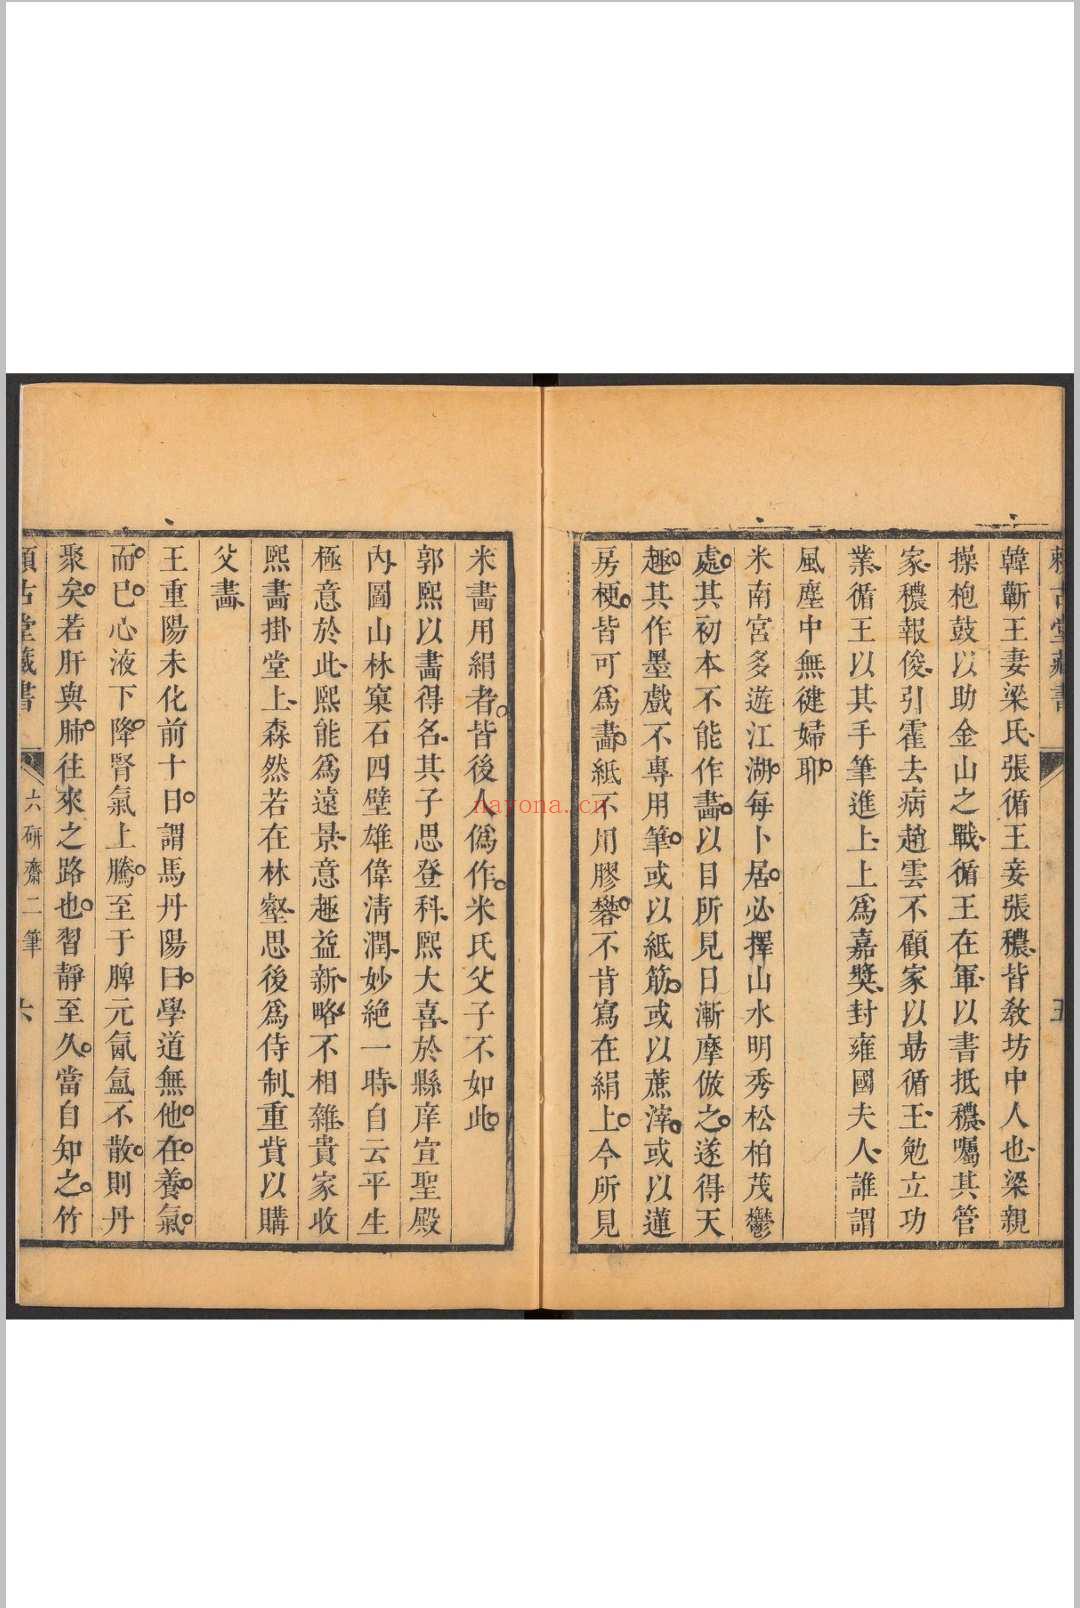 賴古堂藏書
五
韓蘄王妻梁氏張循王妾張穠皆敎坊中人也梁親
操枹鼓以助金山之戰循王在軍以書抵穠囑其管
家穠報俊引霍去病趙雲不顧家以勗循王勉立功
業循王以其手筆進上上爲嘉獎封雍國夫人誰謂
風塵中無健婦耶
米南宮多遊江湖每卜居必擇山水明秀松柏茂鬱
處其初本不能作畵以目所見日漸摩倣之遂得天
趣其作墨戲不專用筆或以紙筋或以蔗滓或以蓮
房梗皆可爲畵紙不用膠礬不肯寫在絹上今所見
米畵用絹者皆後人僞作米氏父子不如此
郭熙以畵得名其子思登科熙大喜於縣庠宣聖殿
內圖山林窠石四壁雄偉淸潤妙絶一時自云平生
極意於此熙能爲遠景意趣益新略不相雜貴家收
熙畵掛堂上森然若在林壑思後爲侍制重貲以購
父畵
王重陽未化前十日謂馬丹陽曰學道無他在養氣
而已心液下降腎氣上騰至于脾元氤氳不散則丹
聚矣若肝與肺往來之路也習靜至久當自知之竹
賴古堂藏書
六研齋二筆
六
nayona.cn